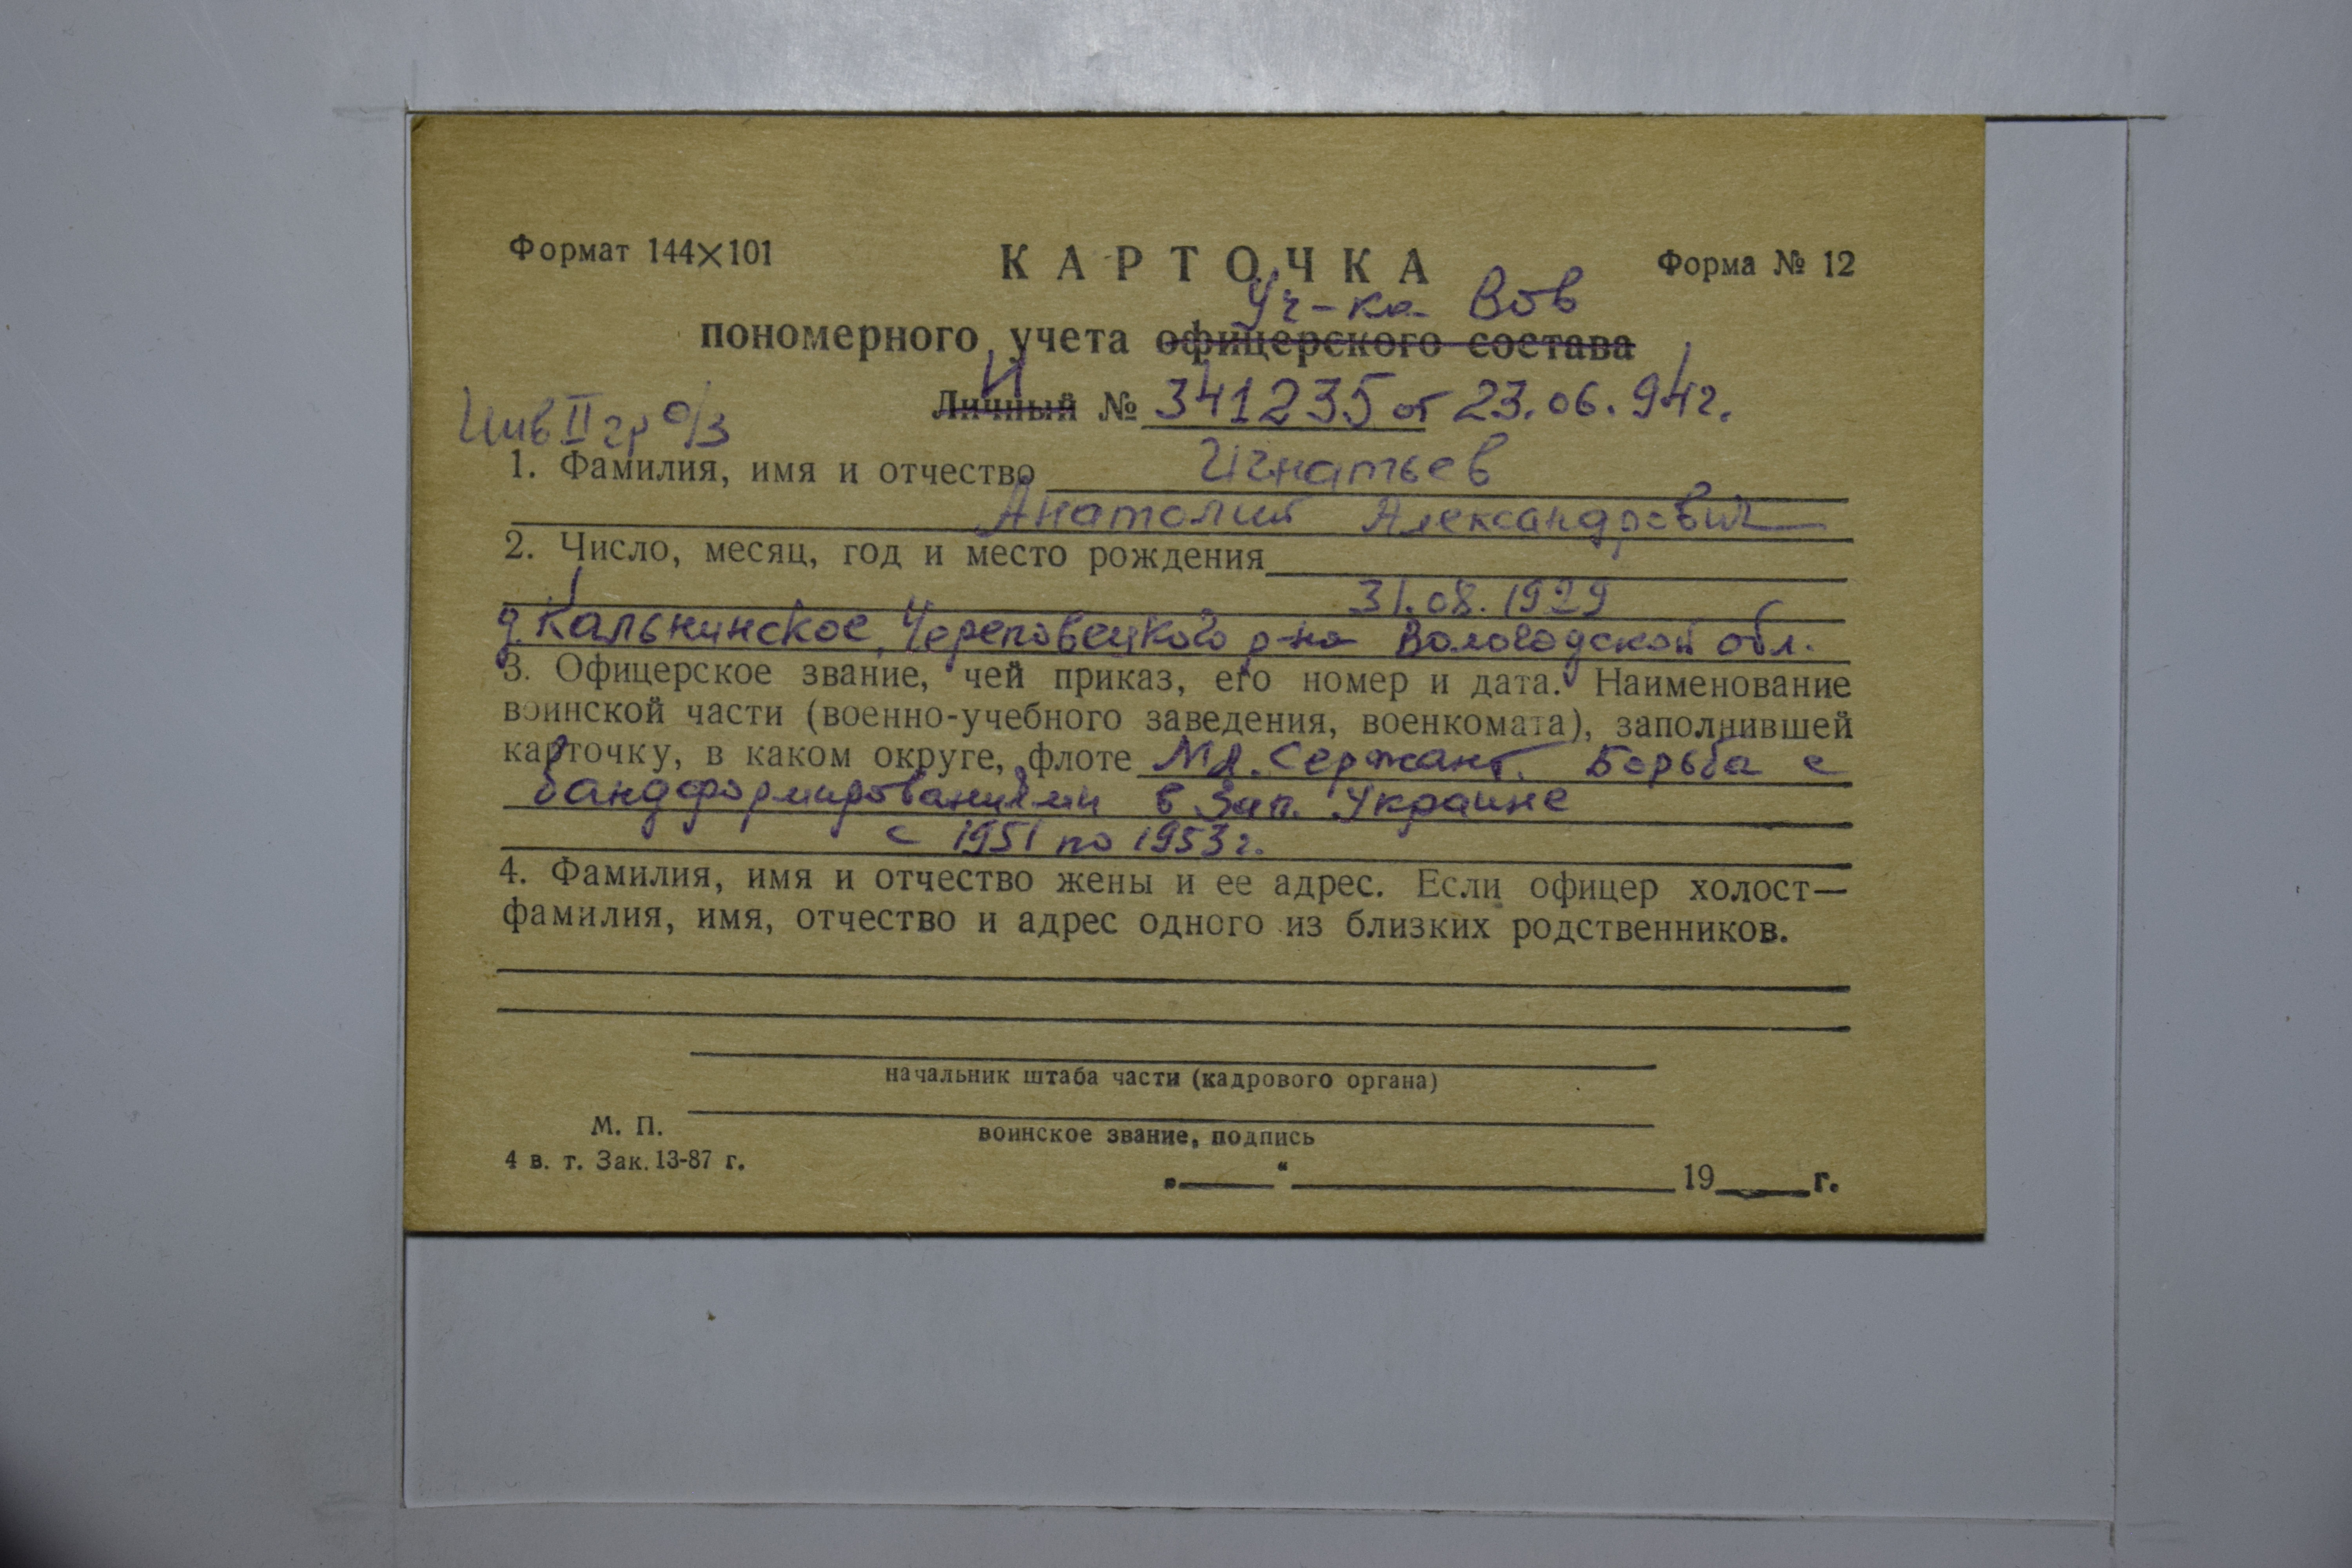 Формат 144×101
КАРТОЧКА
Форма № 12
Уч-ка Вов
пономерного учета офицерского состава
И
Личный № 341235 от 23.06.94г.
Инв II гр о/з
1. Фамилия, имя и отчество Игнатьев
Анатолий Александрович
2. Число, месяц, год и место рождения
31.08.1929
д. Кальнинское, Череповецкого р-на Вологодской обл.
3. Офицерское звание, чей приказ, его номер и дата. Наименование
воинской части (военно-учебного заведения, военкомата), заполнившей
карточку, в каком округе, флоте Мл. Сержант. Борьба с
бандформированиями в Зап. Украине
с 1951 по 1953г.
4. Фамилия, имя и отчество жены и ее адрес. Если офицер холост—
фамилия, имя, отчество и адрес одного из близких родственников.
начальник штаба части (кадрового органа)
М. П.
воинское звание, подпись
4 в. т. Зак. 13-87 г.
„ “ 19 г.